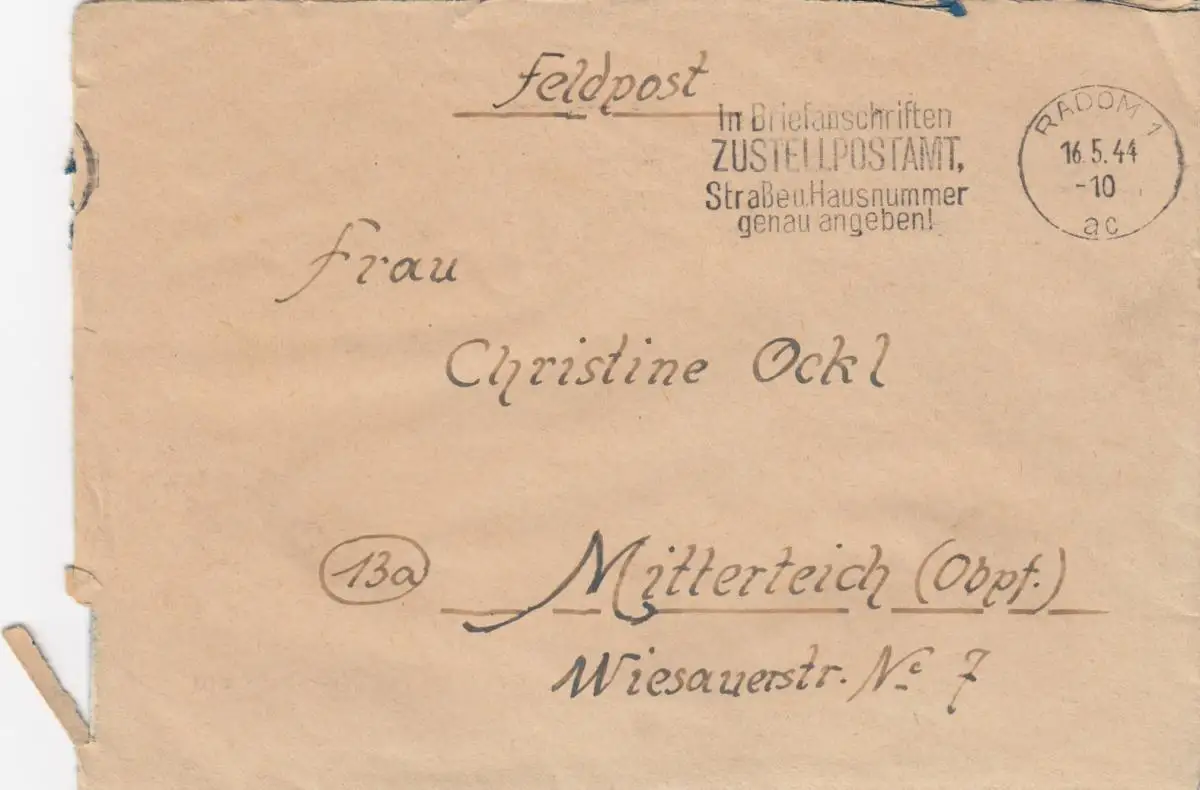 Feldpost
In Briefanschriften
ZUSTELLPOSTAMT,
Straße u. Hausnummer
genau angeben!
RADOM 1
16.5.44
-10
ac
Frau
Christine Ockl
13a
Mitterteich (Obpf.)
Wiesauerstr. No 7